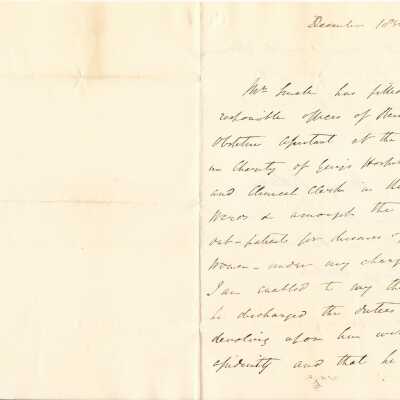 December 18
Mr. has filled
responsible offices of
Obstetric Assistant at the
in Charity of Guy's Hosp
and Clinical Clerk in the
Wards & amongst the
out-patients for diseases of
Women - under my charge
I am enabled to say tha
he discharged the duties
devolving upon him with
assiduity and that he